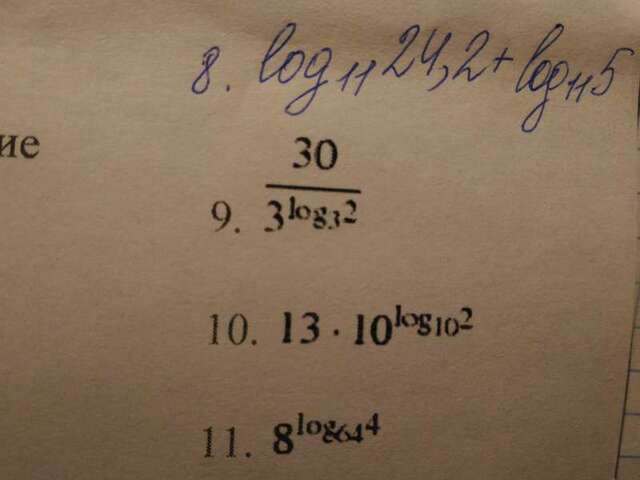 8. log₁₁24,2+log₁₁5
ие
30
9. 3^log₃2
10. 13 · 10^log₁₀2
11. 8^log₆₄4